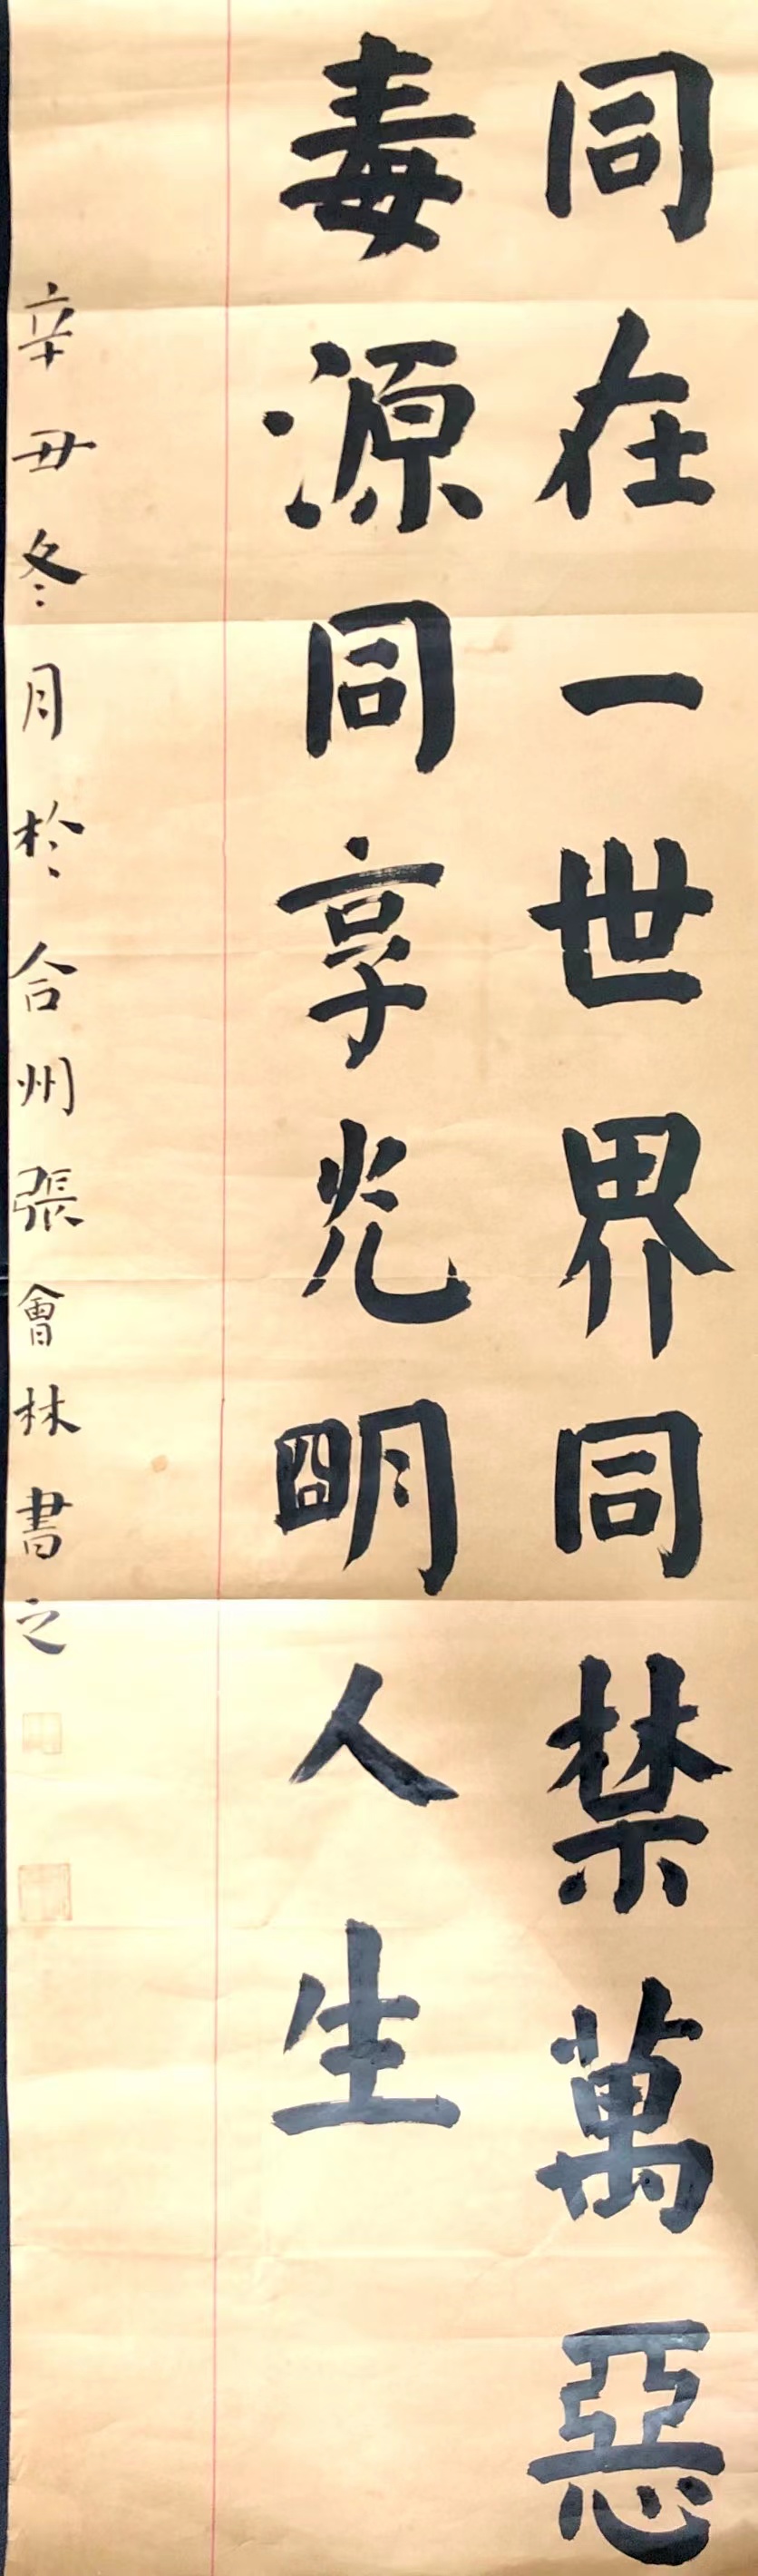 同在一世界同禁萬惡
毒源同享光明人生
辛丑冬月於合州張會林書之